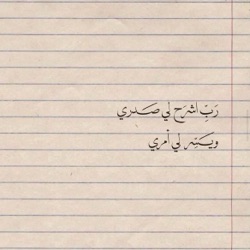 رَبِّ اشرَح لي صَدري
ويَسِّر لي أمري